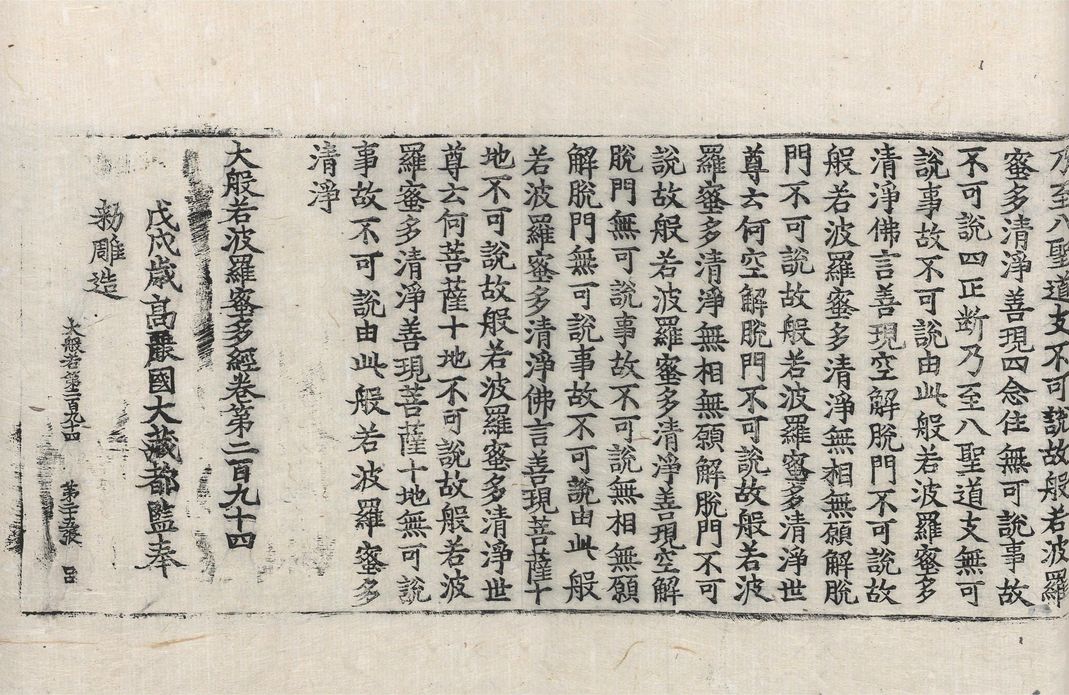 乃至八聖道支不可說故般若波羅
蜜多清淨善現四念住無可說事故
不可說四正断乃至八聖道支無可
說事故不可說由此般若波羅蜜多
清淨佛言善現空解脫門不可說故
般若波羅蜜多清淨無相無願解脫
門不可說故般若波羅蜜多清淨世
尊云何空解脫門不可說故般若波
羅蜜多清淨無相無願解脫門不可
說故般若波羅蜜多清淨善現空解
脫門無可說事故不可說無相無願
解脫門無可說事故不可說由此般
若波羅蜜多清淨佛言善現菩薩十
地不可說故般若波羅蜜多清淨世
尊云何菩薩十地不可說故般若波
羅蜜多清淨善現菩薩十地無可說
事故不可說由此般若波羅蜜多
清淨
大般若波羅蜜多經卷第二百九十四
戊戌歲高麗國大藏都監奉
勑雕造
大般若第二百九十四 第二十五張